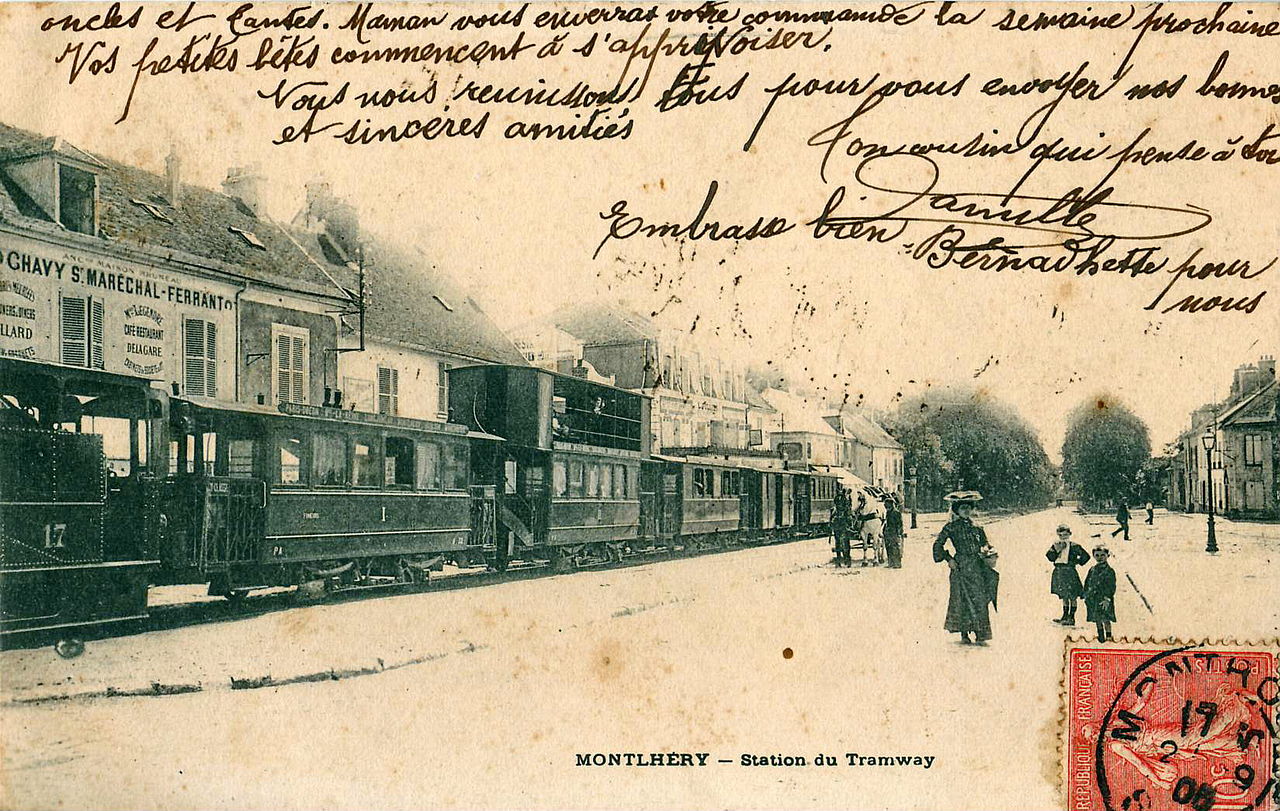 oncles et Tantes. Maman vous enverras votre commande la semaine prochaine
Vos petites bêtes commencent à s'apprivoiser.
Nous nous reunissons tous pour vous envoyer nos bonnes
et sinceres amitiés
Ton cousin qui pense à toi
Camille
Embrasse bien Bernadhette pour
nous
CHAVY Sr MARÉCHAL-FERRANT
LLARD
Mon LEGENDRE
CAFÉ RESTAURANT
DELAGARE
17
1
MONTLHÉRY — Station du Tramway
RÉPUBLIQUE FRANÇAISE
POSTES
10
MONTHÉ
17
2
08